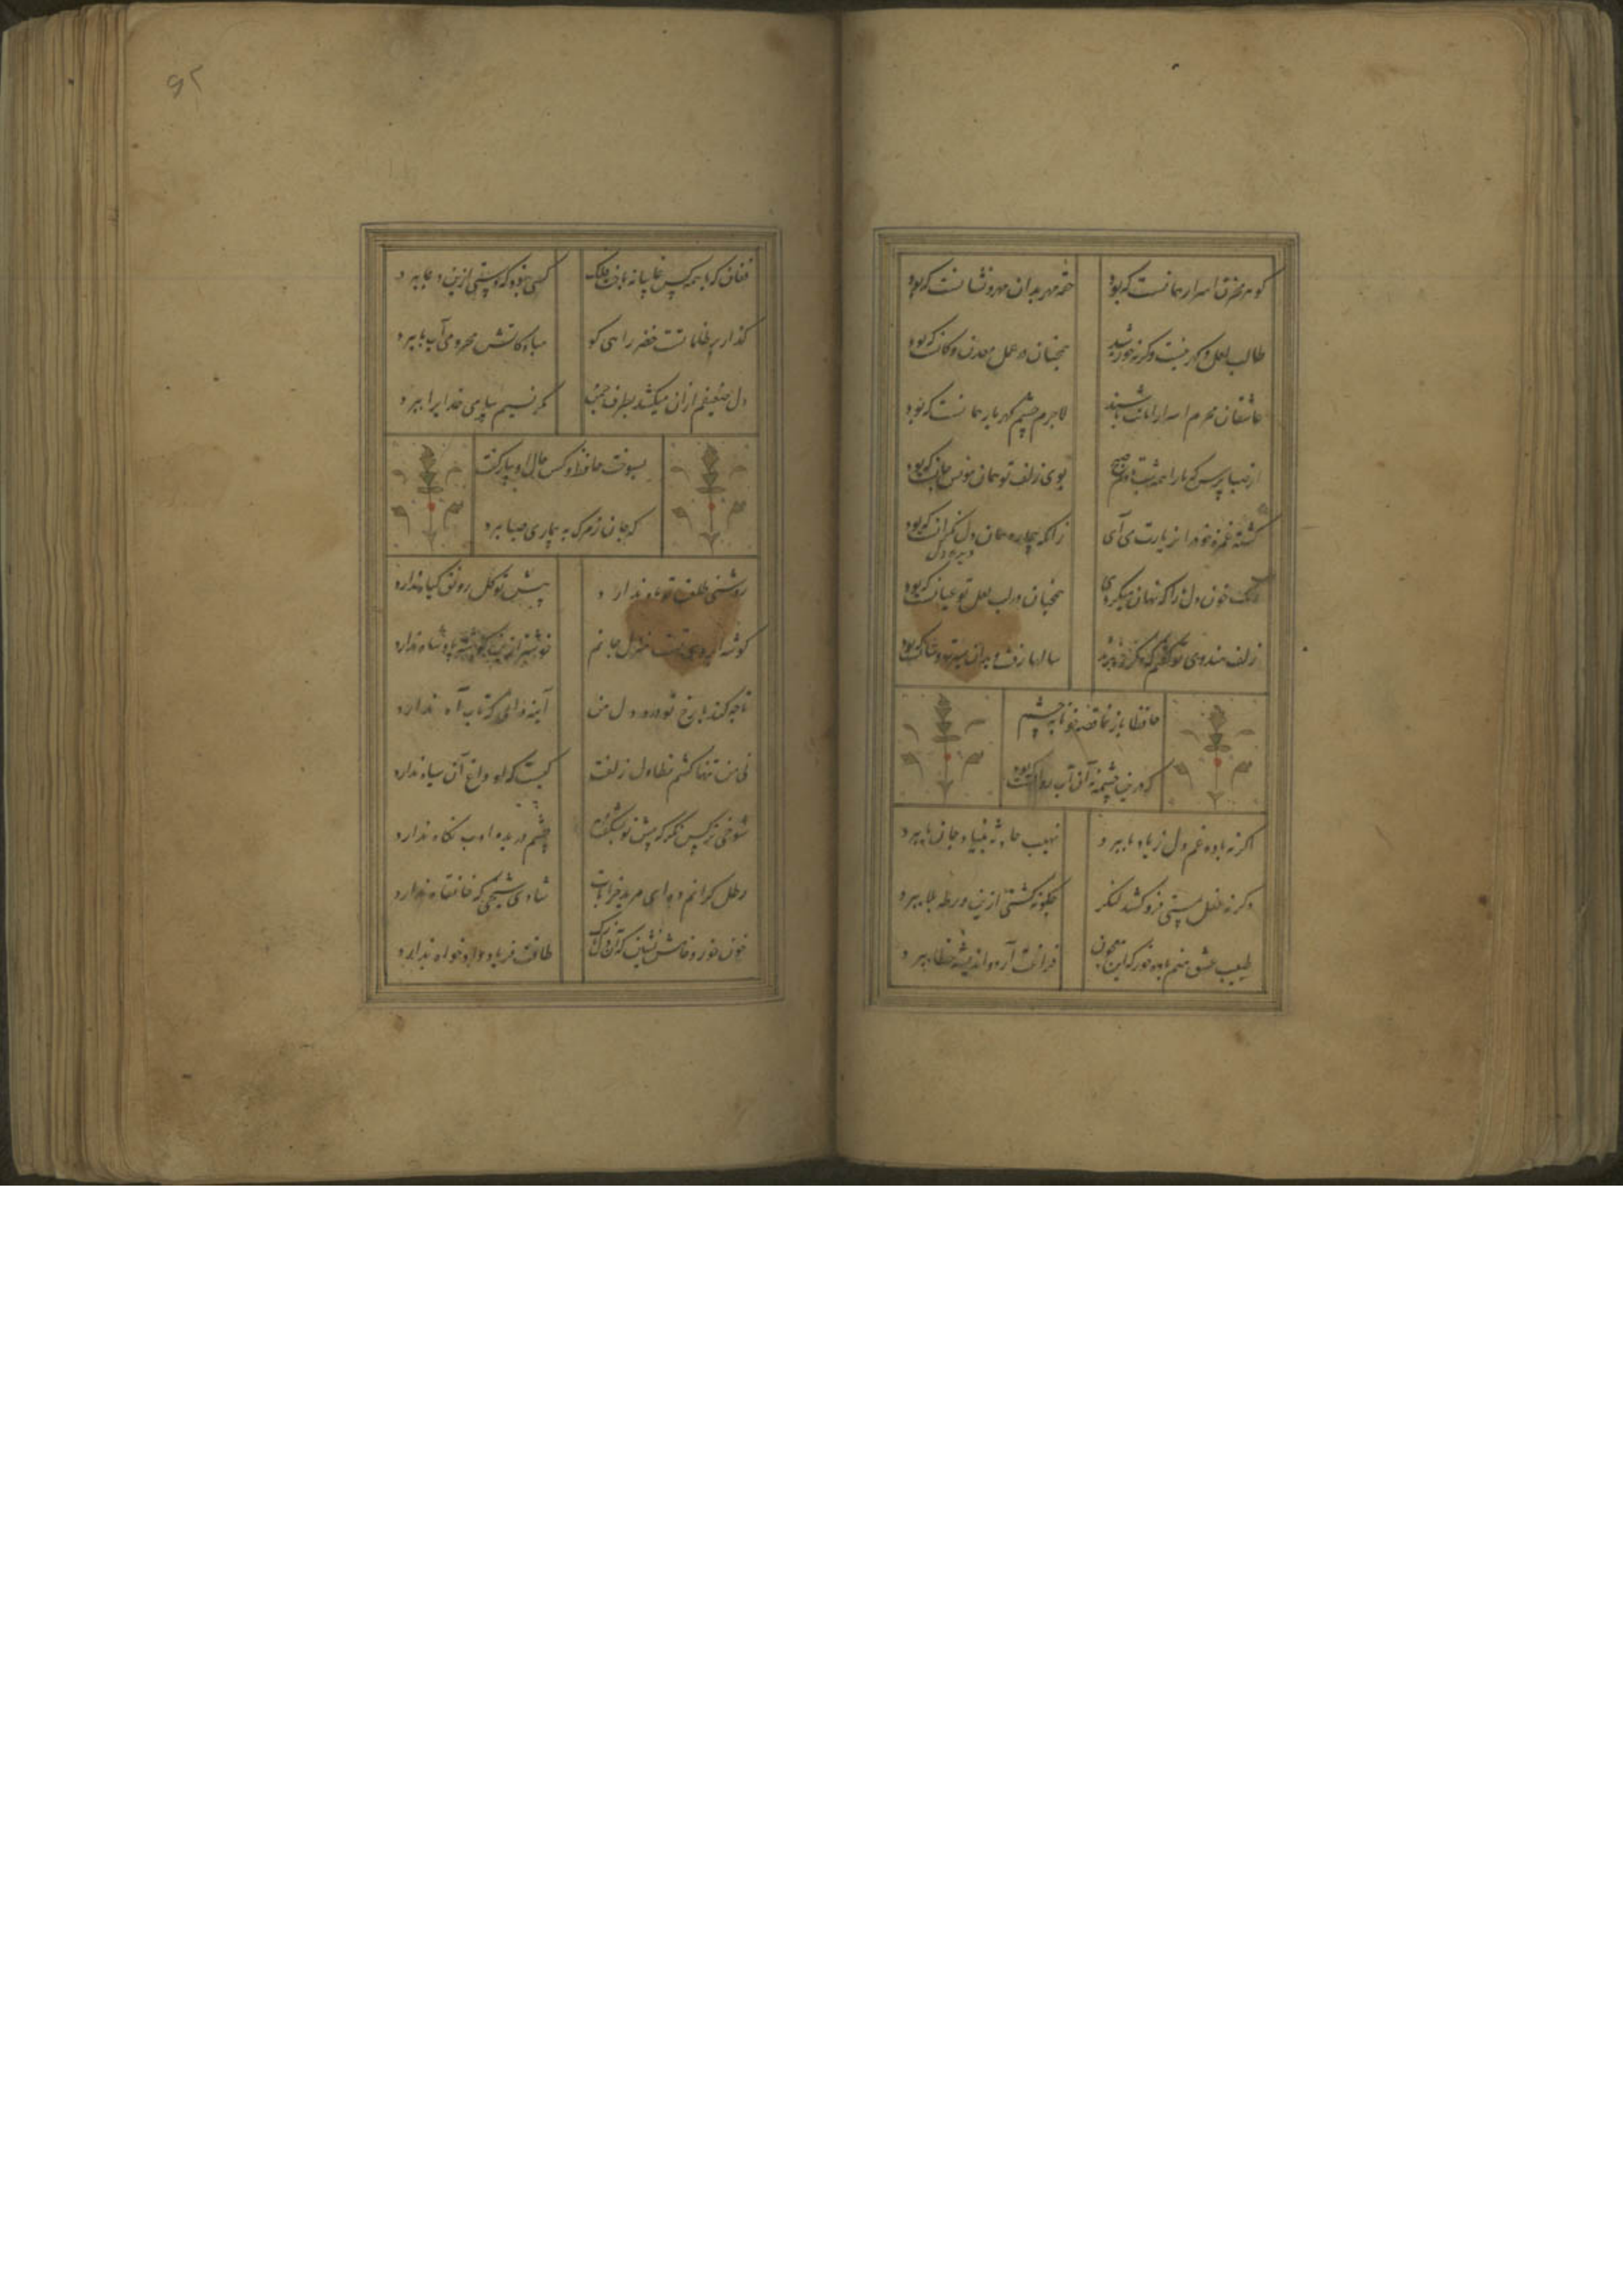 گوهر مخزن اسرار همانست که بود
حقه مهر بدان مهر و نشانست که بود
طالب لعل و گهر نیست وگرنه خورشید
همچنان در عمل معدن و کانست که بود
عاشقان محرم اسرار امانت باشند
لاجرم چشم گهربار همانست که بود
از صبا پرس که ما را همه شب تا دم صبح
بوی زلف تو همان مونس جانست که بود
کشته غمزه خود را بزیارت می آی
زانکه بیچاره همان دل نگرانست که بود
رنگ خون دل ما را که نهان میکردی
همچنان در لب لعل تو عیانست که بود
زلف هندوی تو گفتم که دگر ره نزند
سالها رفت و بدان سیرت و سانست که بود
حافظا باز نما قصه خونابه چشم
که درین چشمه نه آن آب روانست که بود
اگر نه باده غم دل ز یاد ما ببرد
نهیب حادثه بنیاد ما ز جا ببرد
وگرنه عقل بمستی فرو کشد لنگر
چگونه کشتی ازین ورطه بلا ببرد
طبیب عشق منم باده خور که این معجون
فراغت آرد و اندیشه خطا ببرد
۹۲
فغان که با همه کس غایبانه باخت فلک
کسی نبود که دستی ازین دغا ببرد
گذار بر ظلماتست خضر راهی کو
مباد کاتش محرومی آب ما ببرد
دل ضعیفم از آن میکشد بطرف چمن
که نسیم بیاری خدایرا ببرد
بسوخت حافظ و کس حال او بیار نگفت
که جان ز مرگ به بیماری صبا ببرد
روشنی طلعت تو ماه ندارد
پیش تو گل رونق گیاه ندارد
گوشه ابروی تست منزل جانم
خوشتر ازین گوشه پادشاه ندارد
تا چه کند با رخ تو درد دل من
آینه دانی که تاب آه ندارد
نی من تنها کشم تطاول زلفت
کیست که او داغ آن سیاه ندارد
شوخی نرگس نگر که پیش تو بشکفت
چشم دریده ادب نگاه ندارد
رطل گرانم ده ای مرید خرابات
شادی شیخی که خانقاه ندارد
خون خور و خامش نشین که آن دل نازک
طاقت فریاد دادخواه ندارد